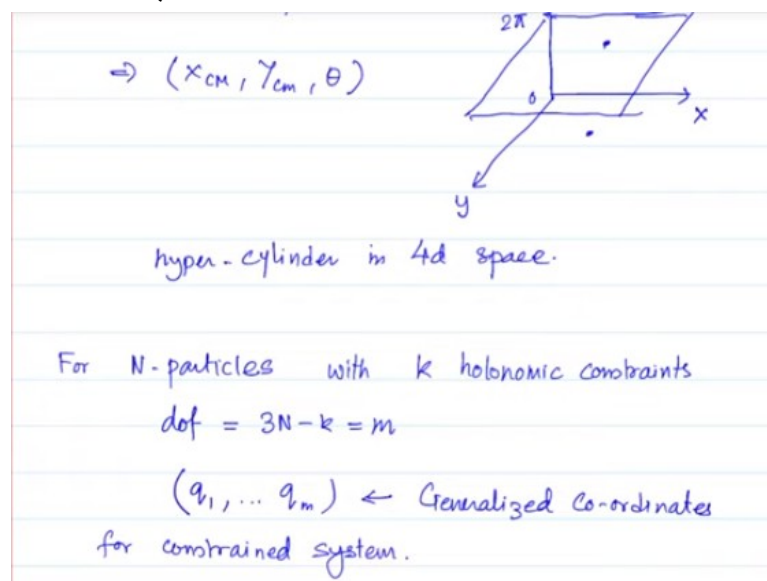 2π
⇒ (x_CM, Y_cm, θ)
0
x
y
hyper-cylinder in 4d space.
For N-particles with k holonomic constraints
dof = 3N-k = m
(q_1, ... q_m) ← Generalized Co-ordinates
for constrained system.